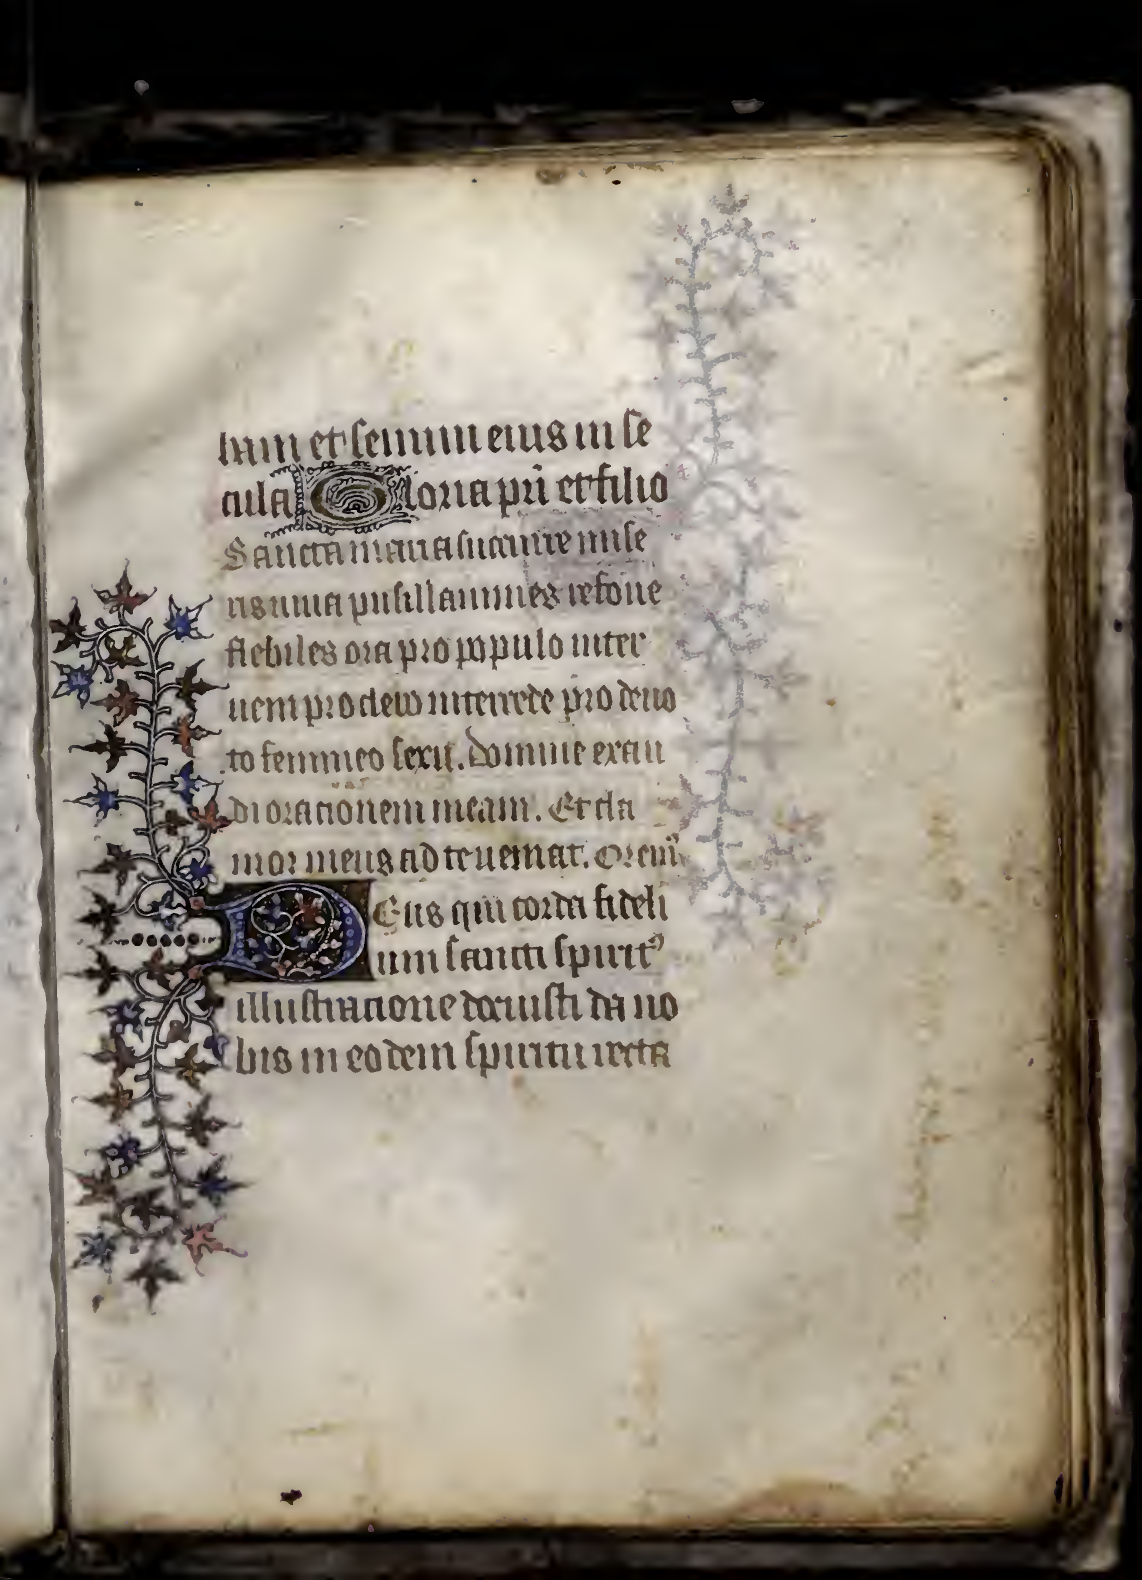 ham et semini eius in se
cula Gloria pr̃i et filio
Sancta maria succurre mise
ris iuua pusillanimes refoue
flebiles ora pro populo inter
ueni pro clero intercede pro deuo
to femineo sexu. Domine exau
di orationem meam. Et cla
mor meus ad te ueniat. Orem̃
Deus qui corda fideli
um sancti spirit᾿
illustracione docuisti da no
bis in eodem spiritu recta